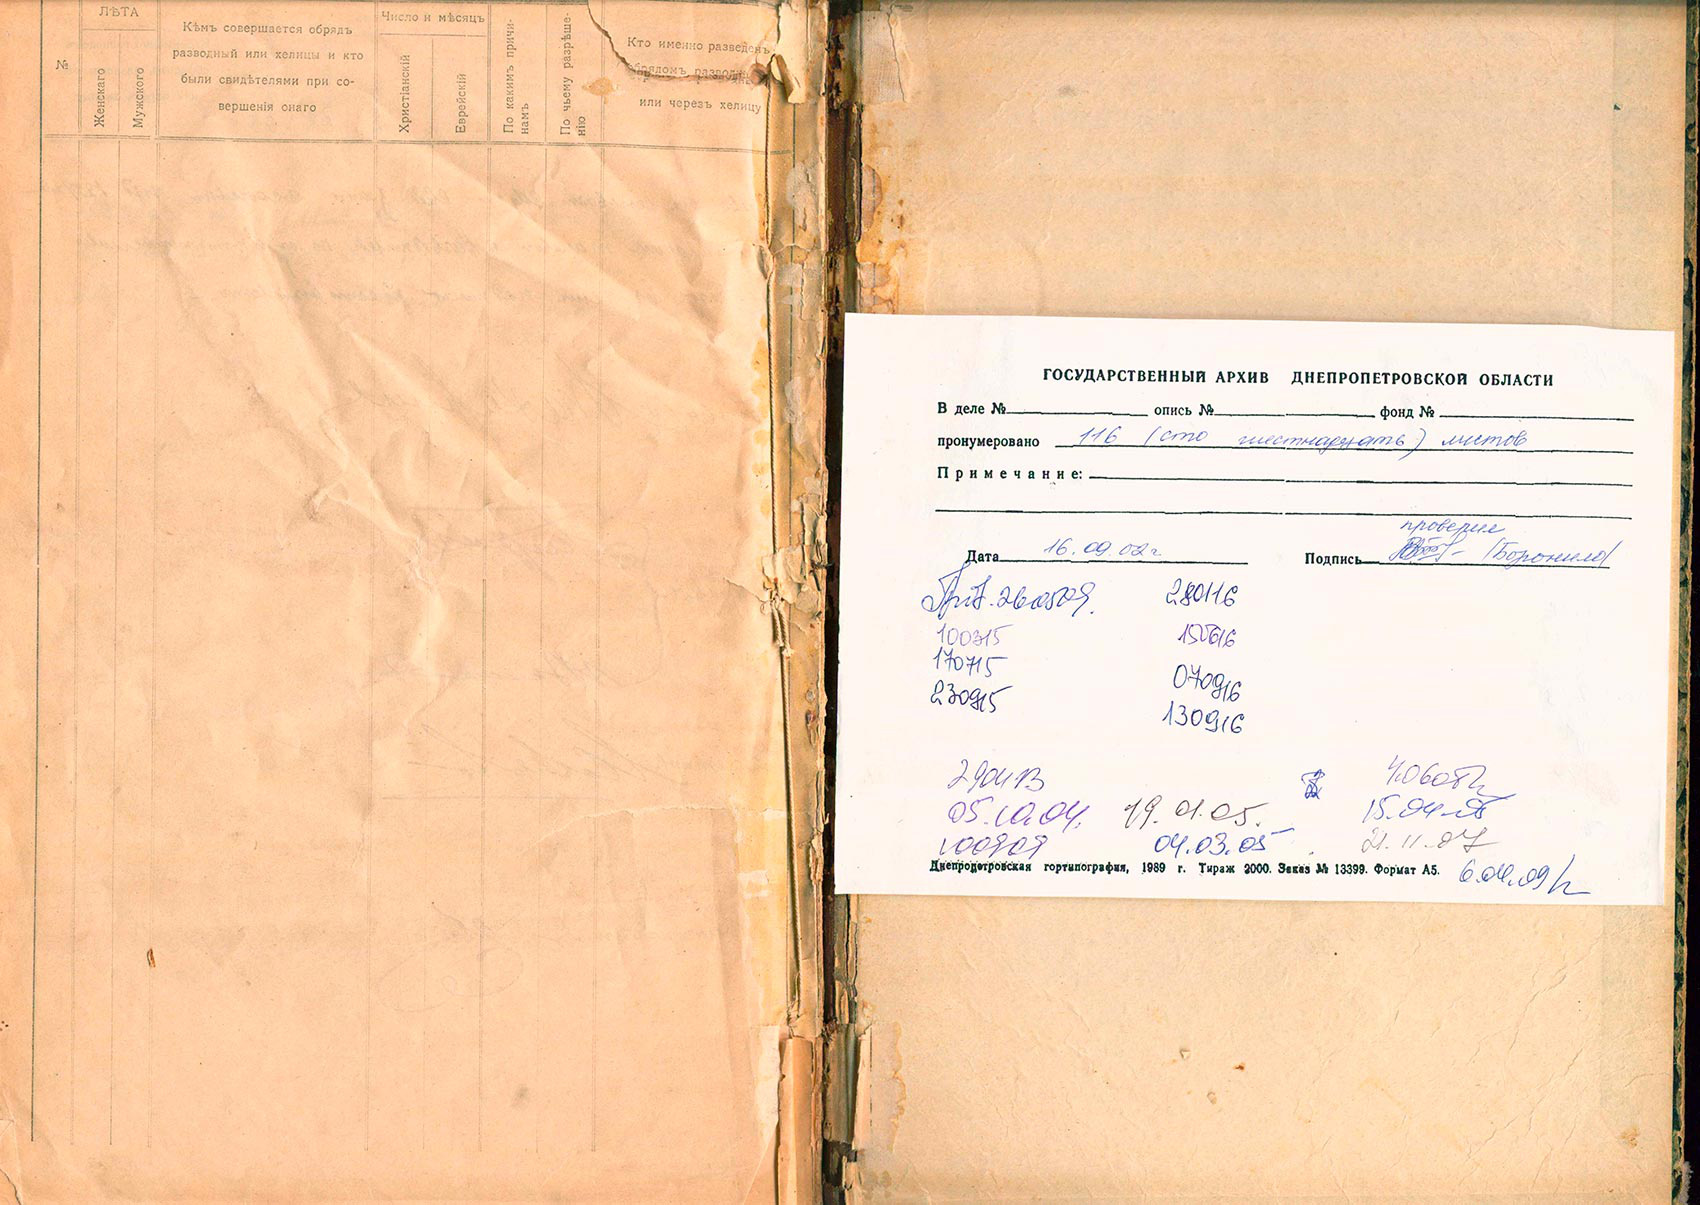 №
ЛѢТА
Женскаго
Мужского
Кѣмъ совершается обрядъ
разводный или хелицы и кто
были свидѣтелями при со-
вершенія онаго
Число и мѣсяцъ
Христіанскій
Еврейскій
По какимъ причи-
намъ
По чьему разрѣше-
нію
Кто именно разведенъ
обрядомъ
или через хелицу
ГОСУДАРСТВЕННЫЙ АРХИВ ДНЕПРОПЕТРОВСКОЙ ОБЛАСТИ
В деле № опись № фонд №
пронумеровано 116 (сто шестнадцать) листов
Примечание:
Дата 16.09.02 г.
проверил
Подпись
260509. 280116
100315 150616
170715
230915 070916
130916
290413
05.10.04. 19.01.05. 15.04.05
100909 04.03.05 21.11.07
Днепропетровская гортипография, 1989 г. Тираж 2000. Заказ № 13399. Формат А5. 6.04.09